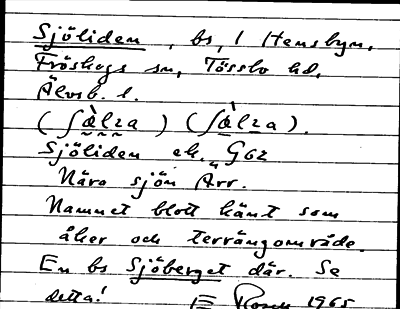 Sjöliden, bs, i Hensbyn,
Fröskogs sn, Tössbo hd,
Älvsb. l.
Sjöliden ek. G62
Nära sjön Ärr.
Namnet blott känt som
åker och terrängområde.
En bs Sjöberget där. Se
detta! 1965